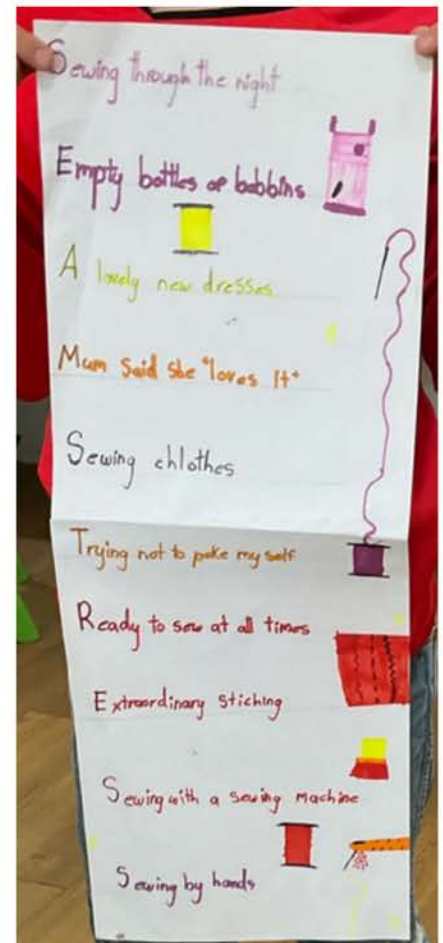 Sewing through the night
Empty bottles of bobbins
A lovely new dresses
Mum Said she "loves It"
Sewing chlothes
Trying not to poke my self
Ready to sew at all times
Extraordinary Stiching
Sewing with a sewing Machine
Sewing by hands